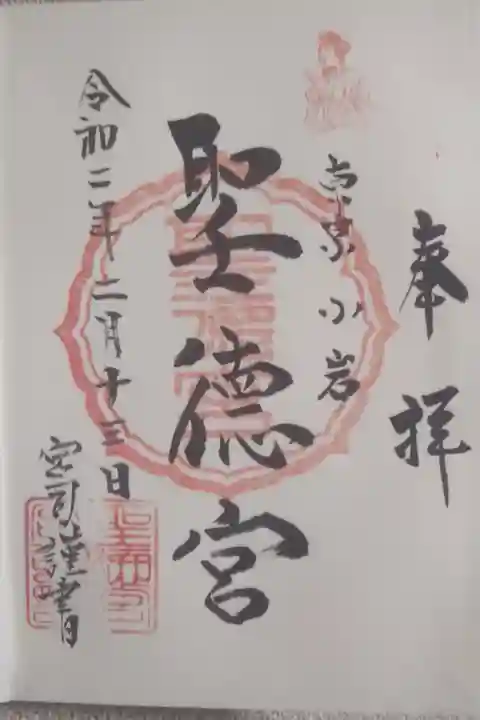 奉拝
東京小岩
聖徳宮
令和二年二月十三日
宮司謹書